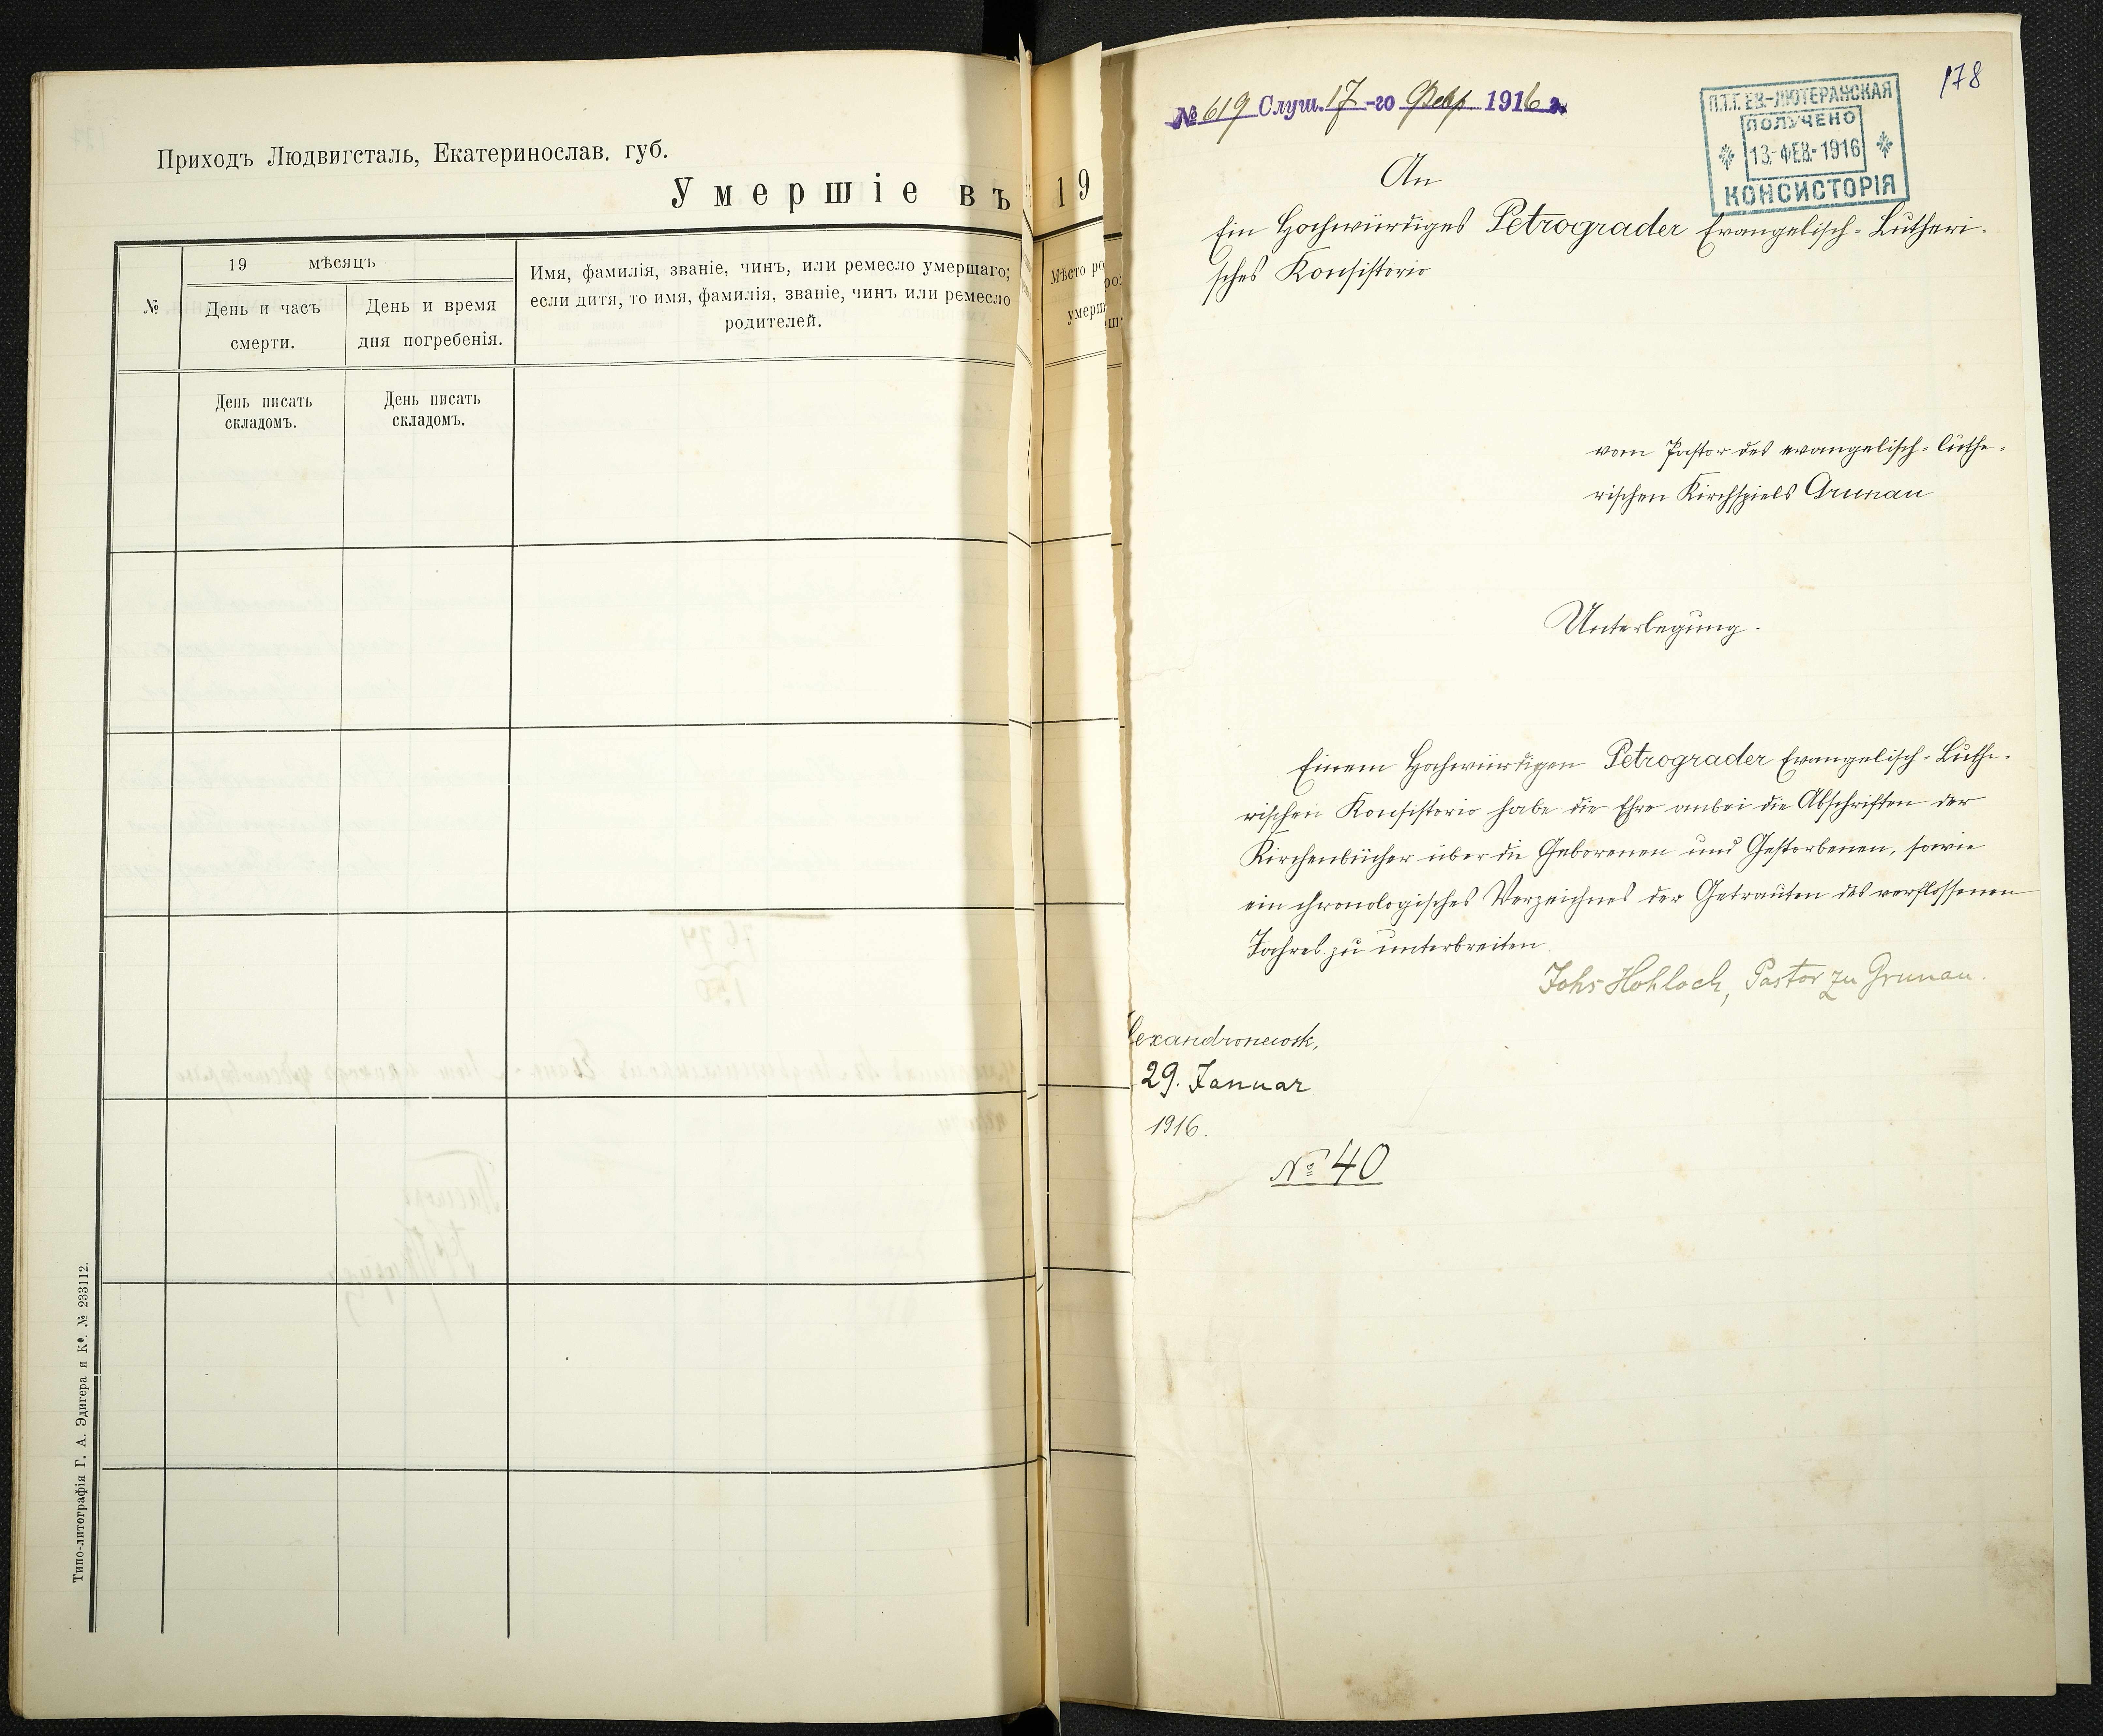 Приходъ Людвигсталь, Екатеринослав. губ.
Умершіе въ 19
№
19 мѣсяцъ
День и часъ
смерти.
День и время
дня погребенія.
Имя, фамилія, званіе, чинъ, или ремесло умершаго;
если дитя, то имя, фамилія, званіе, чинъ или ремесло
родителей.
Мѣсто ро
умерш
День писать
складомъ.
День писать
складомъ.
Типо-литографія Г. А. Эдигера и К°. № 233112.
178
№ 619 Слуш. 17-го Февр 1916 г.
П.Т.Г. ЕВ.-ЛЮТЕРАНСКАЯ
ПОЛУЧЕНО
13-ФЕВ-1916
КОНСИСТОРІЯ
An
Ein Hochwürdiges Petrograder Evangelisch-Lutheri-
sches Konsistorio
vom Pastor des evangelisch-luthe-
rischen Kirchspiels Grunau
Unterlegung.
Einem Hochwürdigen Petrograder Evangelisch-Luthe-
rischen Konsistorio habe die Ehre anbei die Abschriften der
Kirchenbücher über die Geborenen und Gestorbenen, sowie
ein chronologisches Verzeichnes der Getrauten des verflossenen
Jahres zu unterbreiten.
Johs Hohloch, Pastor zu Grunau.
lexandronewsk,
29. Januar
1916.
№ 40